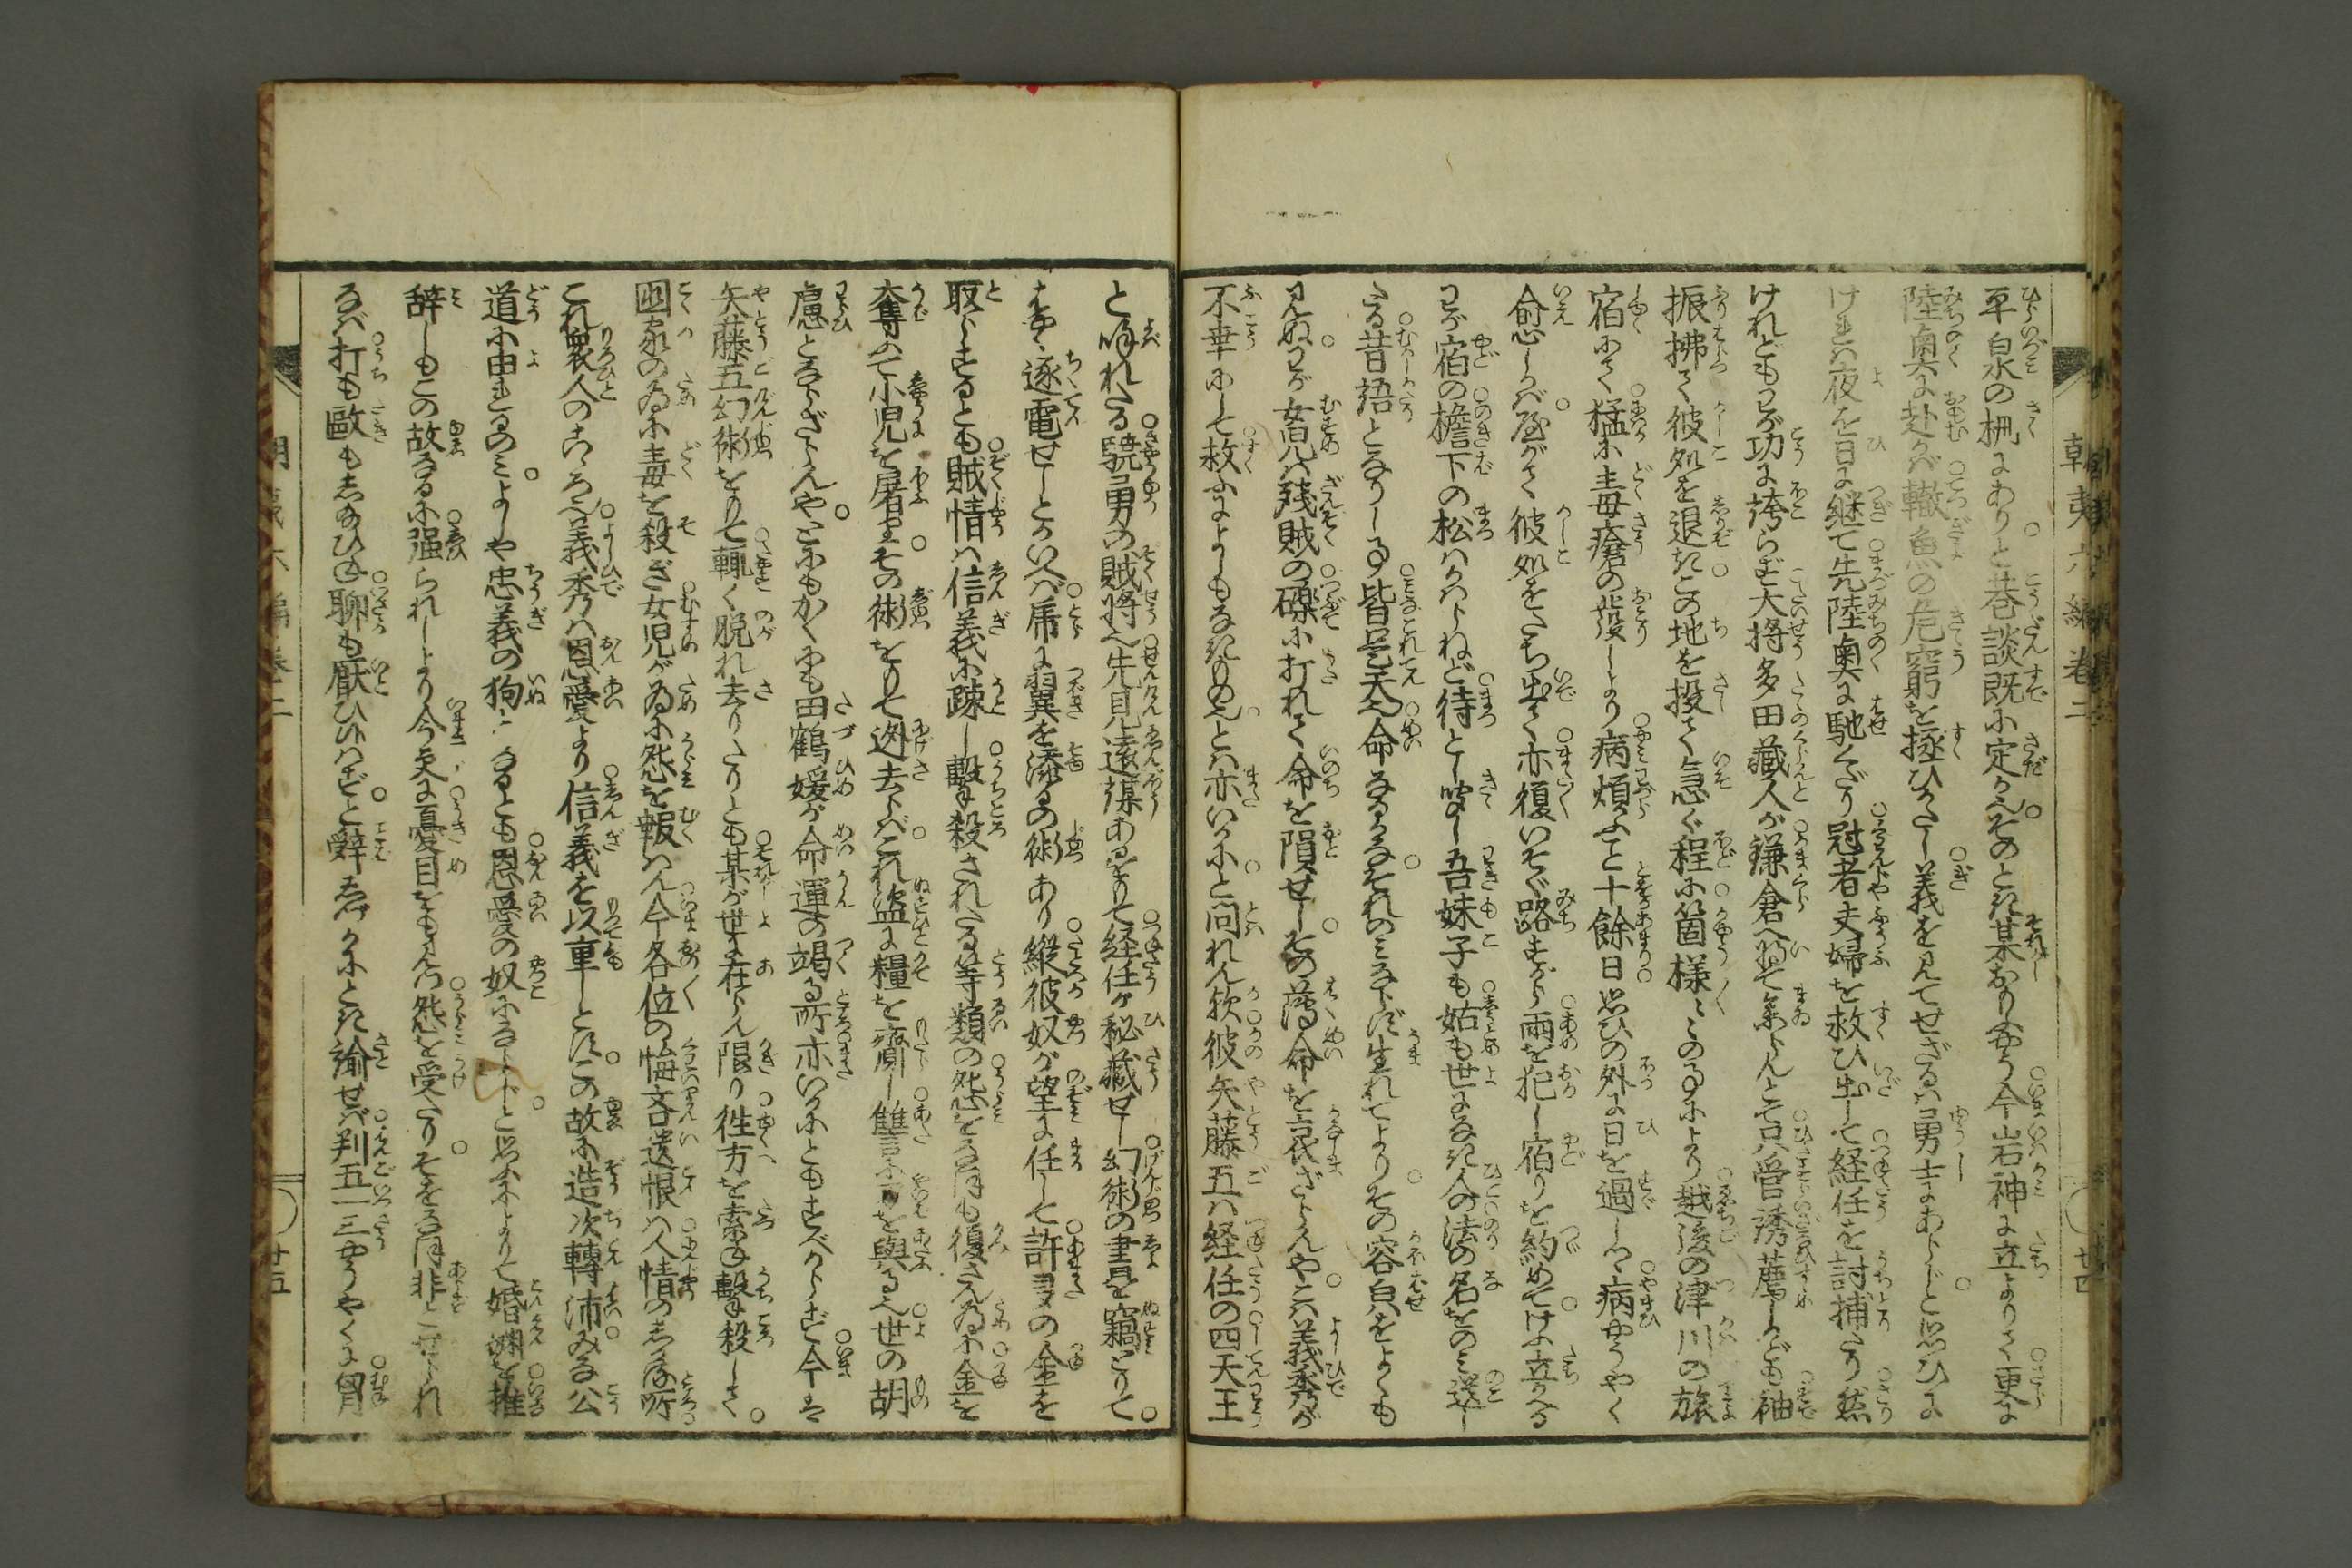 平泉の柵にありと。巷談既に定かなり。そのとき某おもふやう今岩神に立よりて更に
陸奥に赴かば轍魚の危窮を拯ひかたし義を見てせざるは勇士にあらじと思ひに
ければ夜を日に継て先陸奥に馳くだり冠者夫婦を救ひ出して経任を討捕たり然
けれどもわが功に誇らず大将多田蔵人が鎌倉へ将て参らんとそ只管誘薦しかども袖
振拂て彼処を退きこの地を投て急ぐ程に箇様々々の事により越後の津川の旅
宿にて猛に毒瘡の發しより病煩ふこと十餘日思ひの外に日を過しつ病やうやく
愈しかば。屋がて彼処をたち出て亦復いそぐ路すがら雨を犯し宿りを約めてけふ立かへる
わが宿の檐下の松はかはらねど待とし聞し吾妹子も姑も世になき人の法の名をのみ遺し
たる昔語となりし事皆是天命なるかな。それのみならず生れてよりその容白をよくも
見ぬ。わが女児は残賊の礫に打れて命を隕せし。その薄命を哀ざらんや。こは義秀が
不幸にして救ふによしもなきものといはゞ亦いかに。と問れん歟彼矢藤五は経任の四天王
と呼れたる驍勇の賊将也先見遠謀あるをもて経任が秘蔵せし幻術の書を竊とりて。
はや逐電せしとかいへば。虎に翼を添るの術あり縦彼奴が望に任して許多の金を
取らするとも賊情は信義に疎し撃殺されたる等類の怨をかへすも復さん為に金を
奪ふて小児を屠り。その術をもて迯去らば。これ盗に糧を齎し讐に刃を與る也世の胡
慮とならざらんや。とにもかくにも田鶴媛が命運の竭る所亦いかにともすべからず今はた
矢藤五幻術をもて輙く脱れ去りたりとも某が世に在らん限り往方を索ね撃殺して。
国家の為に毒を殺ぎ女児が為に怨を報はん今各位の悔吝遺恨は人情のしかる所
これ衆人のこゝろ也義秀は恩愛より信義を以重しとす。この故に造次轉沛みな公
道に由まるのみ。よしや忠義の狗となるとも恩愛の奴にならじ。と思ふによりて婚縁を推
辞しもこの故なるに强られしより今更に憂目をも見つ怨を受たり。そをなほ非とせられ
なば打も歐もし給ひね聊も厭ひはせじ。と辭しづかにとき諭せば判五一三やうやくに胸
朝夷六編巻二
廿四
朝夷六編巻二
廿五